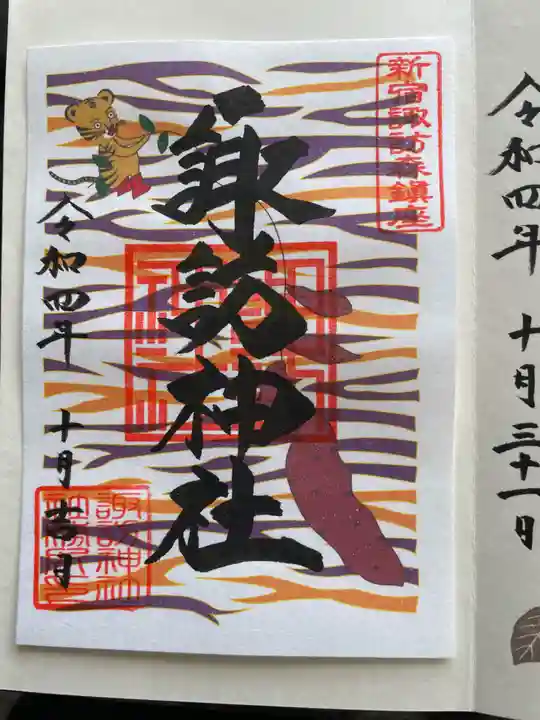 令和四年 十月三十一日
新宿諏訪森鎮座
諏訪神社
令和四年 十月吉日